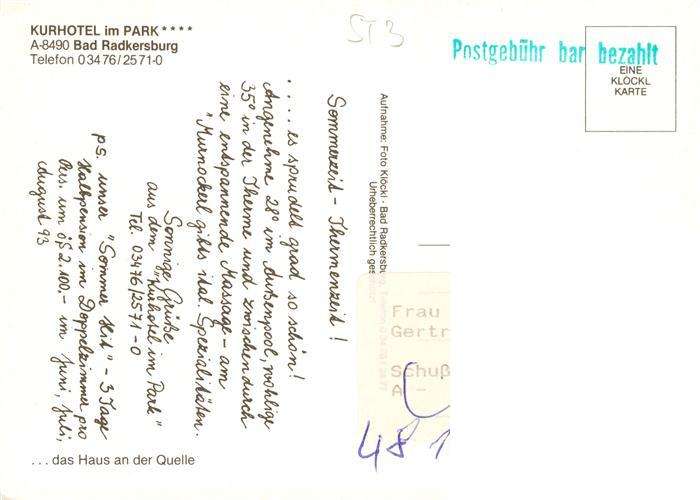 KURHOTEL im PARK ****
A-8490 Bad Radkersburg
Telefon 0 34 76/25 71-0
ST 3
Postgebühr bar bezahlt
EINE
KLÖCKL
KARTE
Aufnahme: Foto Klöckl · Bad Radkersbu
Urheberrechtlich ges
Sommerzeit - Thermenzeit!
.... es sprudelt grad so schön!
Angenehme 28° im Außenpool, wohlige
35° in der Therme und zwischendurch
eine entspannende Massage - am
"Murnockerl gibts ital. Spezialitäten.
Sonnige Grüße
aus dem "Kurhotel im Park"
Tel. 03476/2571-0
ps. unser "Sommer Hit" - 3 Tage
Halbpension im Doppelzimmer pro
Pers. um öS 2.100.- im Juni, Juli,
August 93
Frau
Gertr
Schuß
A -
48 1
... das Haus an der Quelle